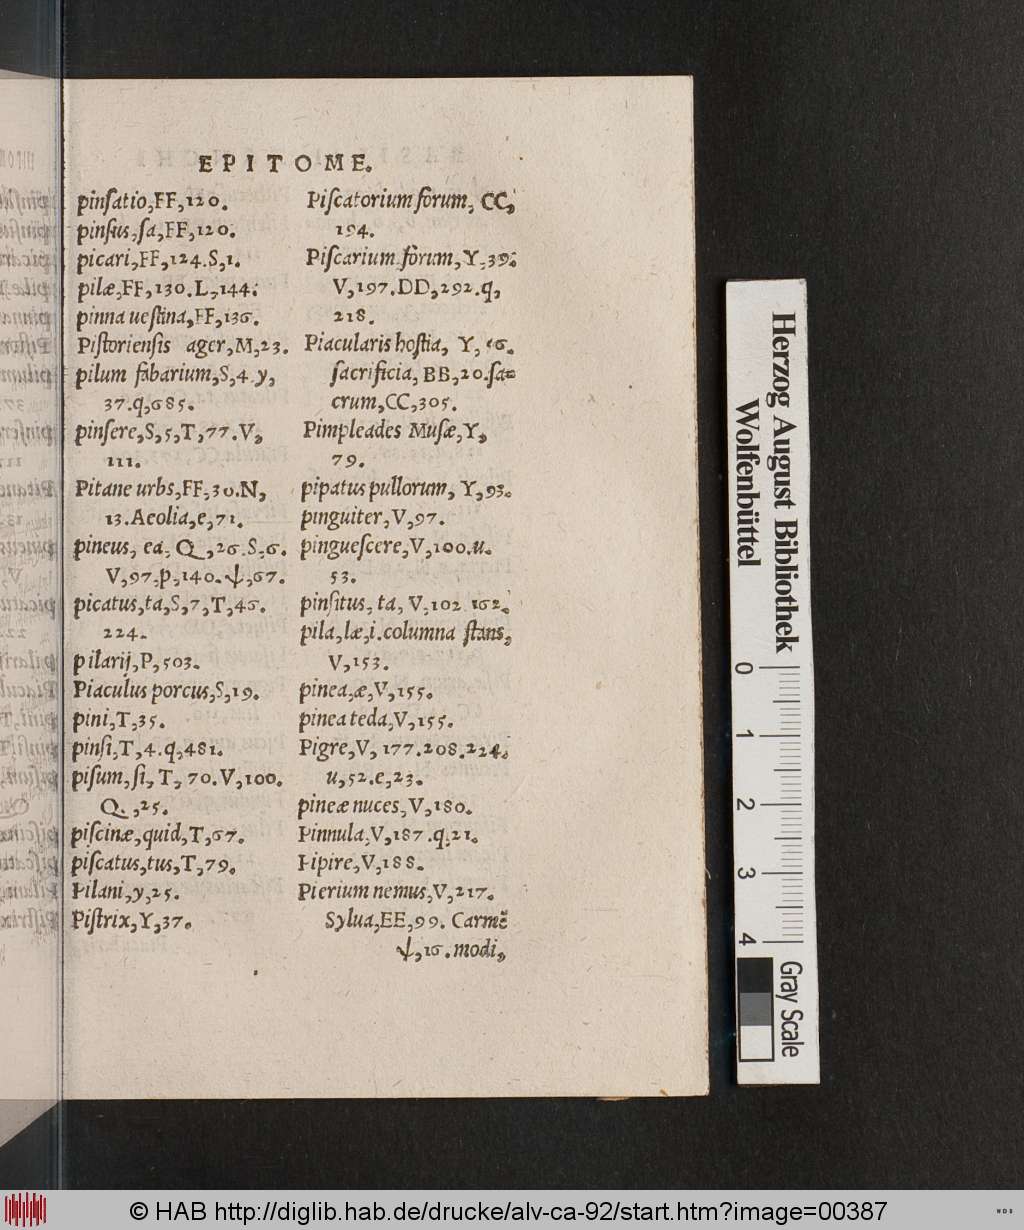 EPITOME.
pinſatio,FF,120.
pinſus,ſa,FF,120.
picari,FF,124.S,1.
pilæ,FF,130.L,144.
pinna ueſtina,FF,136.
Piſtorienſis ager,M,23.
pilum fabarium,S,4.y,
37.q,685.
pinſere,S,5,T,77.V,
111.
Pitane urbs,FF,30.N,
13.Aeolia,e,71.
pineus, ea, Q,26.S,6.
V,97,p,140.ψ,67.
picatus,ta,S,7,T,46.
224.
pilarij,P,503.
Piaculus porcus,S,19.
pini,T,35.
pinſi,T,4.q,481.
piſum,ſi,T,70.V,100.
Q,25.
piſcinæ,quid,T,67.
piſcatus,tus,T,79.
Pilani,y,25.
Piſtrix,Y,37.
Piſcatorium forum, CC,
194.
Piſcarium forum,Y,39.
V,197.DD,292.q,
218.
Piacularis hoſtia, Y,
ſacrificia, BB,20.ſa=
crum,CC,305.
Pimpleades Muſæ,Y,
79.
pipatus pullorum, Y,93.
pinguiter,V,97.
pingueſcere,V,100.u.
53.
pinſitus, ta, V,102 162.
pila,læ,i.columna ſtans,
V,153.
pinea,æ,V,155.
pinea teda,V,155.
Pigre,V, 177.208.224.
u,52.e,23.
pineæ nuces,V,180.
Pinnula,V,187.q,21.
Pipire,V,188.
Pierium nemus,V,217.
Sylua,EE,99. Carmẽ
ψ,16.modi,
Herzog August Bibliothek
Wolfenbüttel
0 1 2 3 4
Gray Scale
© HAB http://diglib.hab.de/drucke/alv-ca-92/start.htm?image=00387